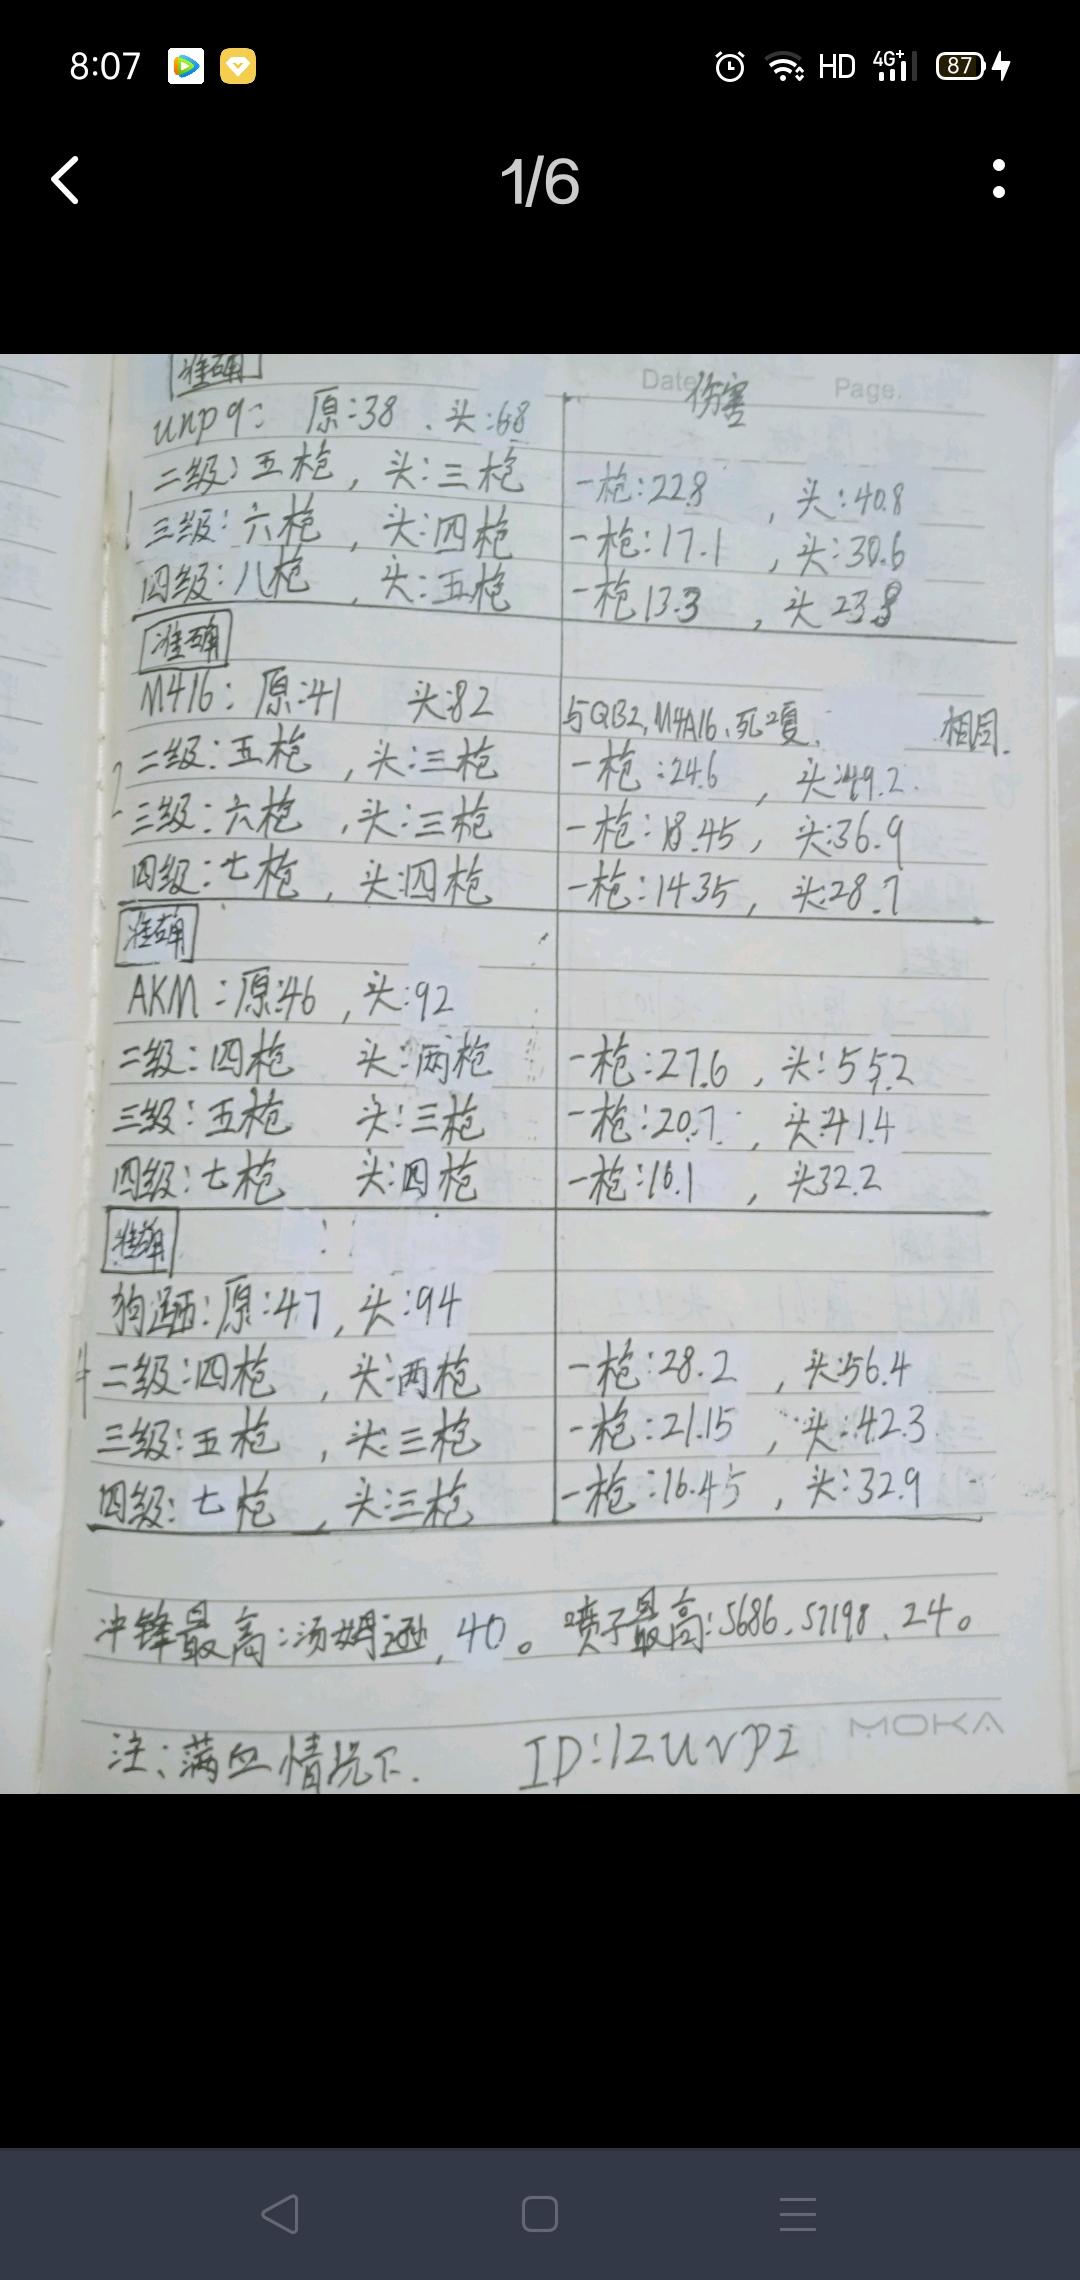 8:07 HD 4G+ 87
1/6
准确
Date 伤害 Page.
ump9: 原:38、头:68
二级:五枪,头:三枪 一枪:22.8,头:40.8
三级:六枪,头:四枪 一枪:17.1,头:30.6
四级:八枪,头:五枪 一枪13.3,头23.8
准确
M416:原:41 头:82 与QBZ,M4A16、死 相同.
二级:五枪,头:三枪 一枪:24.6,头:49.2.
三级:六枪,头:三枪 一枪:18.45,头:36.9
四级:七枪,头:四枪 一枪:14.35,头:28.7
准确
AKM:原:46,头:92
二级:四枪 头:两枪 一枪:27.6,头:55.2
三级:五枪 头:三枪 一枪:20.7,头:41.4
四级:七枪 头:四枪 一枪:16.1,头32.2
准确
狗:原:47,头:94
二级:四枪,头:两枪 一枪:28.2,头:56.4
三级:五枪,头:三枪 一枪:21.15,头:42.3
四级:七枪,头:三枪 一枪:16.45,头:32.9
冲锋最高:汤姆逊,40。喷子最高:S686、S1198、24。
注:满血情况下. ID:
MOKA